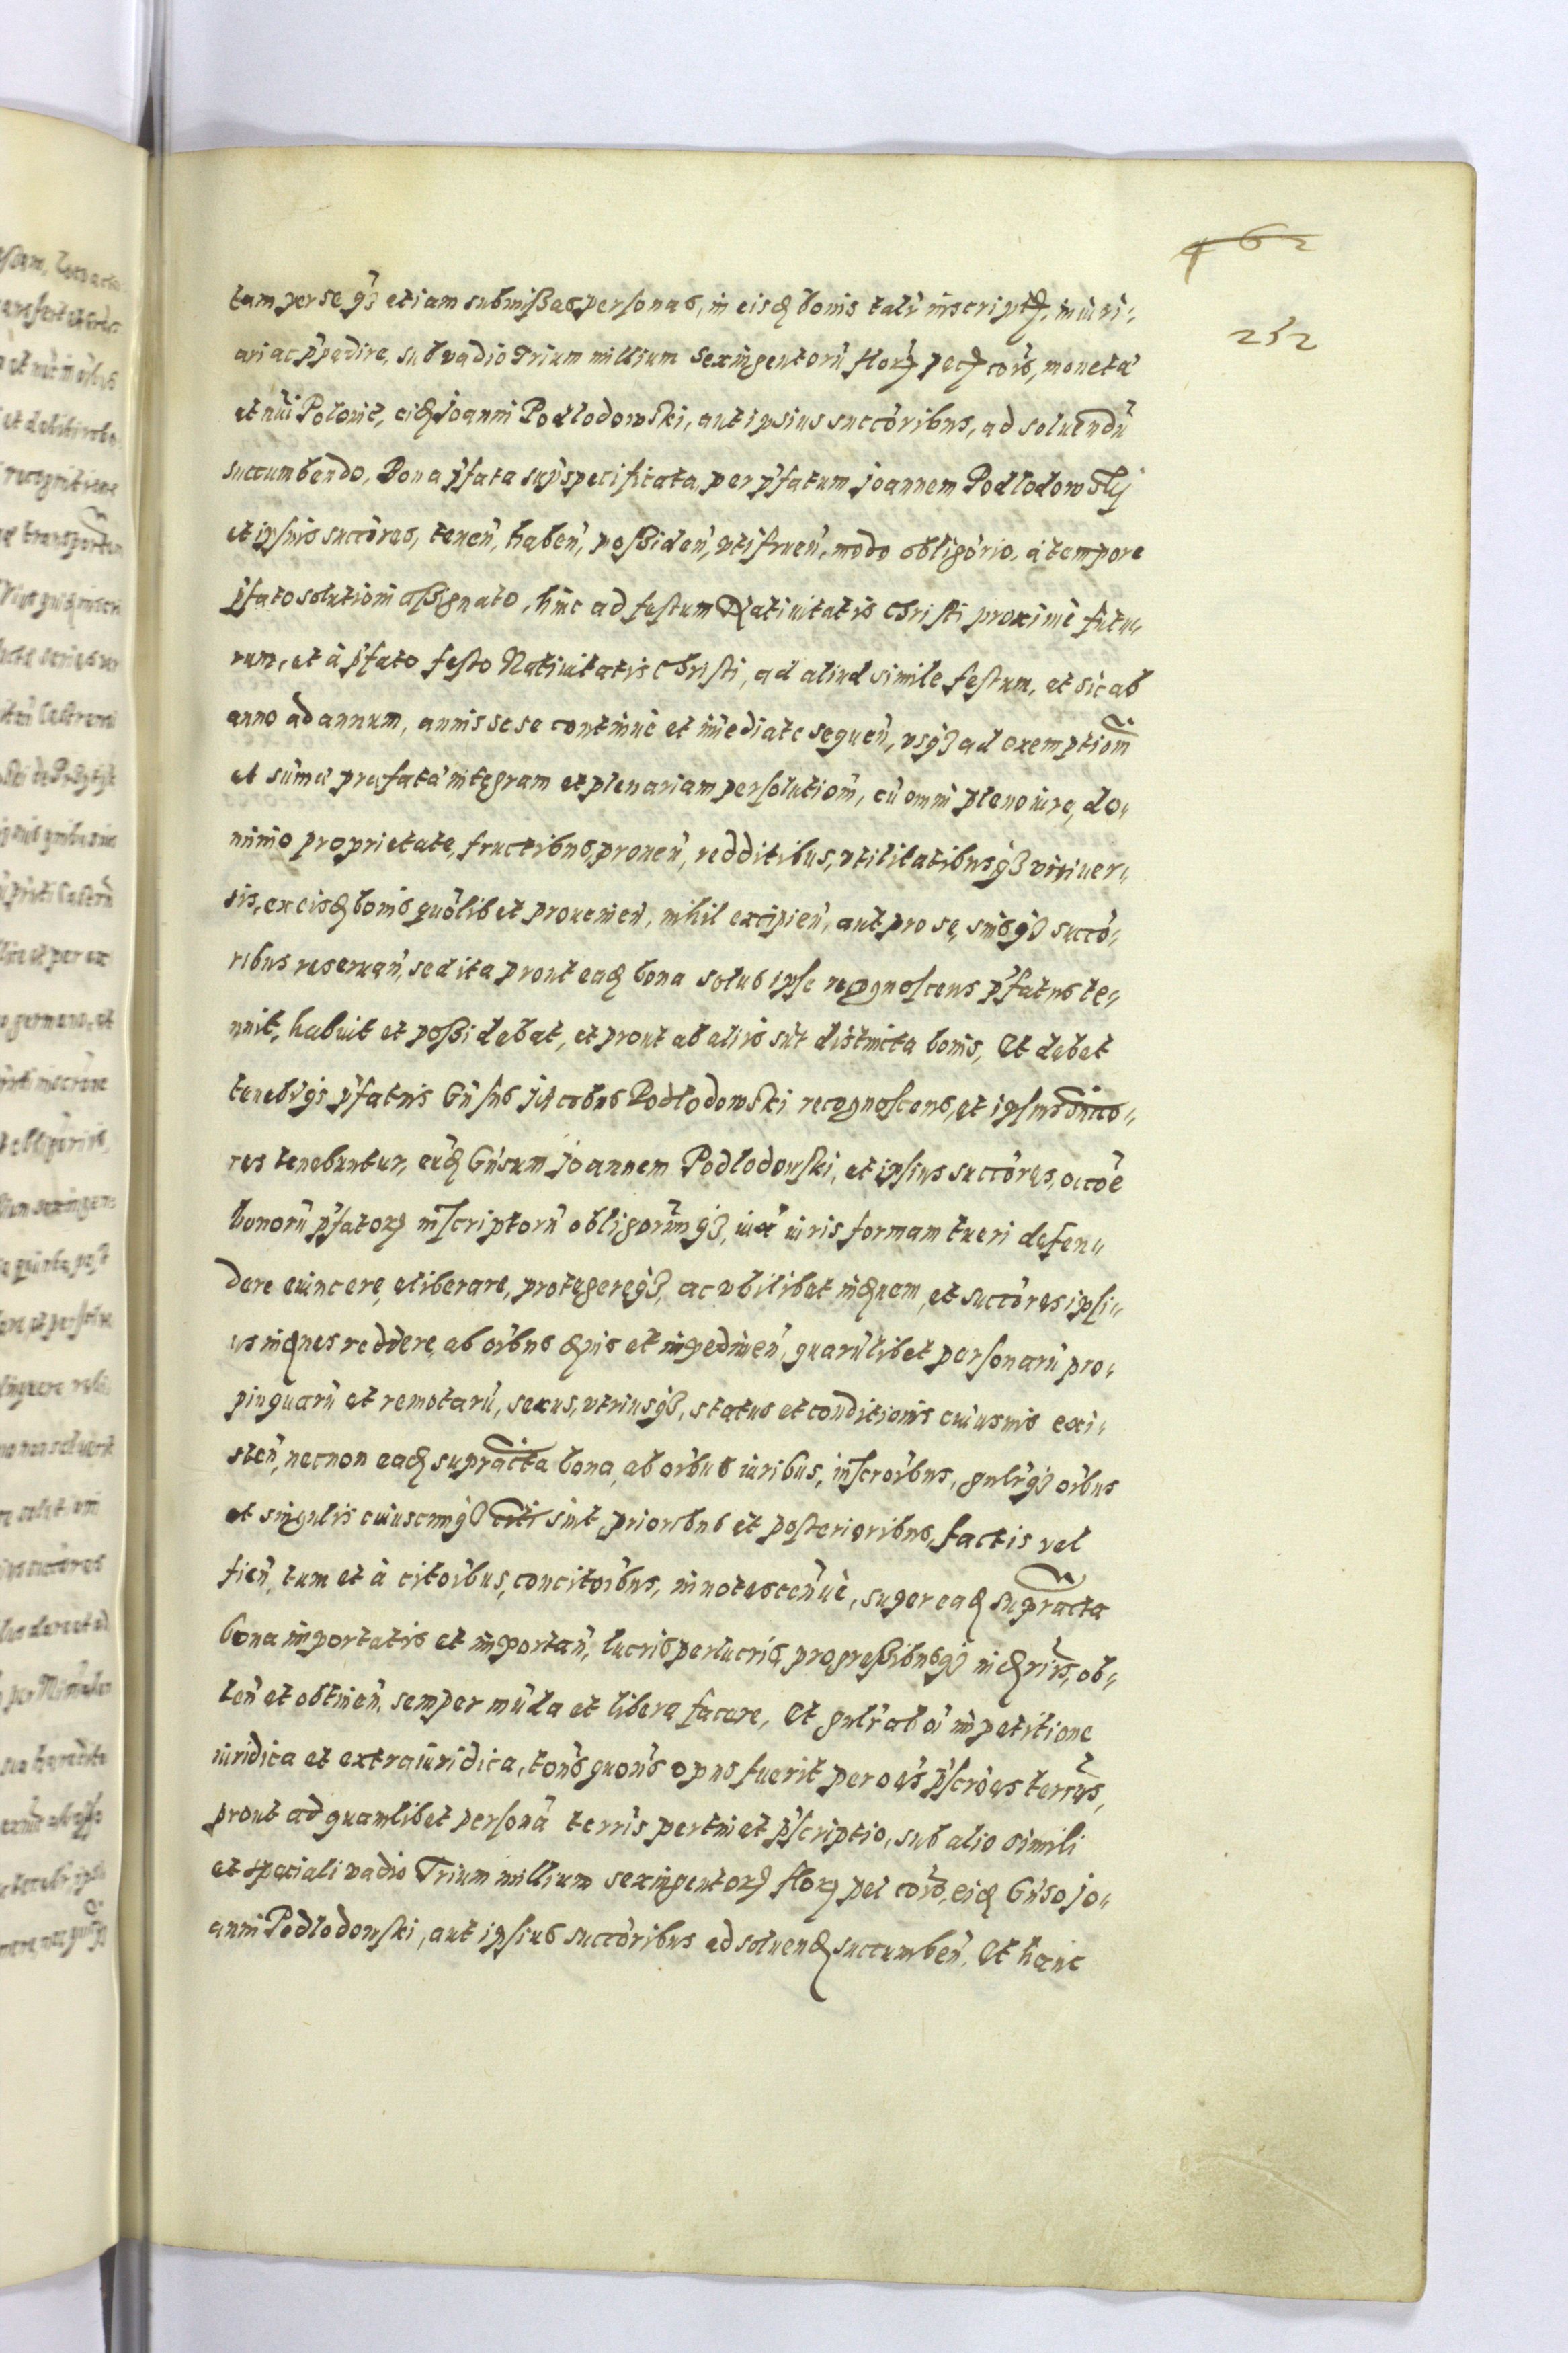 162
252
tam per se q̃3 etiam submißas personas, in eisd bonis talr̃ inscript, iniuri,,
ari ac p̃pedire, sub vadio Trium millium Sexingentorũ flor pec cois, monetæ
et nũi Polonic, eid Joanni Podlodowski, aut ipsius succoribus, ad soluendũ
succumbendo, Bona p̃fata sup̃specificata, per p̃fatum Joannem Podlodowskj
et ipsius succores, tenen̄, haben̄, poßiden̄, vti fruen̄, modo obligorio, à tempore
p̃fato solutioni aßignato, hinc ad festum Natiuitatis Christi proximè futu,,
rum, et à p̃fato festo Natiuitatis Christi, ad aliud simile festum, et sic ab
anno ad annum, annis sese continuè et im̃ediatè sequen̄, vsq3 ad exemptiom̃
et sum̃æ præfatæ integram et plenariam persolutiom̃, cũ omni pleno iure, do,,
minio proprietate, fructibus, prouen̄, redditibus, vtilitatibusq3 vniuer,,
sis, ex eisd bonis quolibet prouenien̄, nihil excipien̄, aut pro se, suisq3 succo,,
ribus reseruan̄, sed ita prout ead bona solus ipse recognoscens p̃fatus te,,
nuit, habuit et poßidebat, et prout ab aliis sũt distincta bonis, Et debet
tenebitqs p̃fatus Gn̄sus Jacobus Podlodowski recognoscens, et ipsius succo,,
res tenebuntur, eũd Gn̄sum Joannem Podlodowski, et ipsius succores, occoe
bonorũ p̃fator inscriptorũ obligorumq3, iuxa iuris formam tueri defen,,
dere euincere, eliberare, protegereq3, ac vbilibet indnem, et succores ipsi,,
us indnes reddere, ab oibus dnis et impedimen̄, quarũlibet personarũ pro,,
pinquarũ et remotarũ, sexus, vtriusq3, status et conditionis cuiusuis exi,,
sten̄, necnon ead supracta bona, ab oibus iuribus, inscroibus, gnlr̃q3 oibus
et singulis cuiuscunq3 sint, prioribus et posterioribus, factis vel
fien̄, tum et à citoibus, concitoibus, innotescen̄ue, super ead supracta
bona importatis et importan̄, lucris perlucris, progreßibusq3 inderiis, ob,,
ten̄ et obtinen̄, semper mũda et libera facere, Et gnlr̃ ab oi impetitione
iuridica et extraiuridica, tons quons opus fuerit per oes p̃scroes terres,
prout ad quamlibet personã terris pertinet p̃scriptio, sub alio simili
et speciali vadio Trium millium sexingentor flor pec cois, eid Gn̄so Jo,,
anni Podlodowski, aut ipsius succoribus ad soluend succumben̄. Et hanc